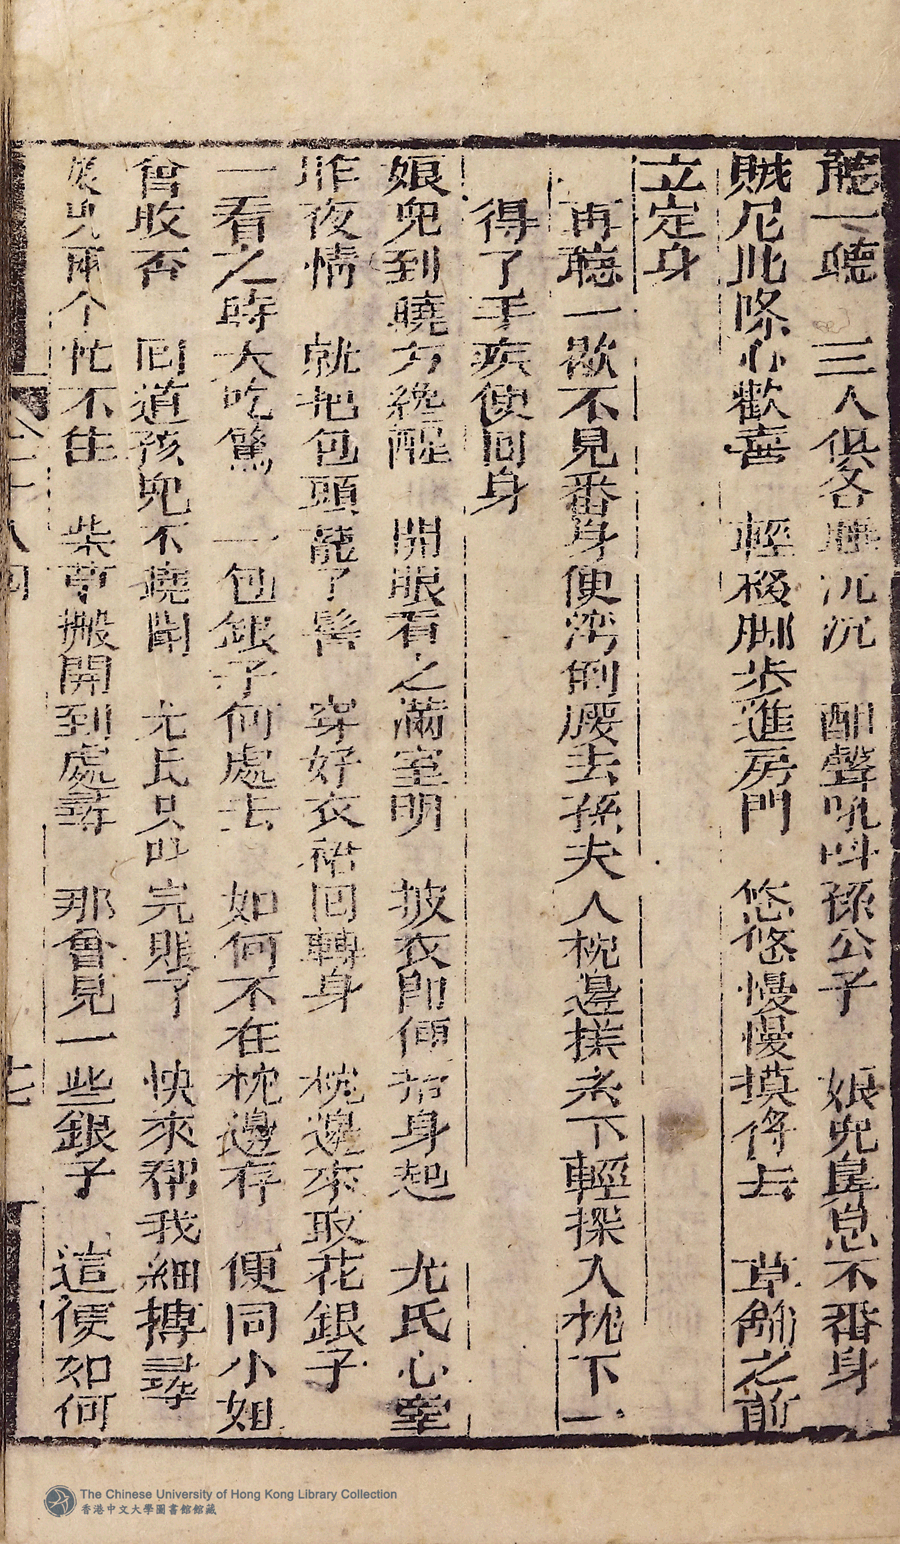 聽一聽　三人俱各睡沉沉　酣聲吼吽孫公子　娘兒鼻息不番身
賊尼此際心歡喜　輕移脚步進房門　悠悠慢慢摸將去　草舖之前
立定身
再聽一歇不見番身便湾倒腰去孫夫人枕邊搓去下輕探入枕下一
得了手疾便回身
娘兒到曉方纔醒　開眼看之滿室明　披衣即便抬身起　尤氏心牽
昨夜情　就把包頭蘢了髻　穿好衣裙回轉身　枕邊來取花銀子
一看之時大吃驚　一包銀子何處去　如何不在枕邊存　便同小姐
曾收否　回道孩兒不曉聞　尤氏只叫完賬了　快來帮我細摶尋
娘兒兩个忙不住　柴草搬開到處尋　那會見一些銀子　這便如何
二十八回
The Chinese University of Hong Kong Library Collection
香港中文大學圖書館館藏